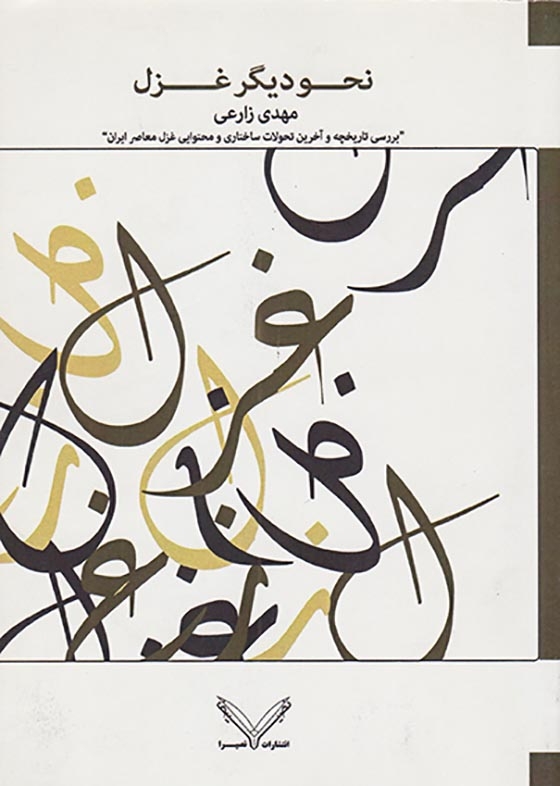 نحو دیگر غزل
مهدی زارعی
"بررسی تاریخچه و آخرین تحولات ساختاری و محتوایی غزل معاصر ایران"
غزل
انتشارات نصیرا